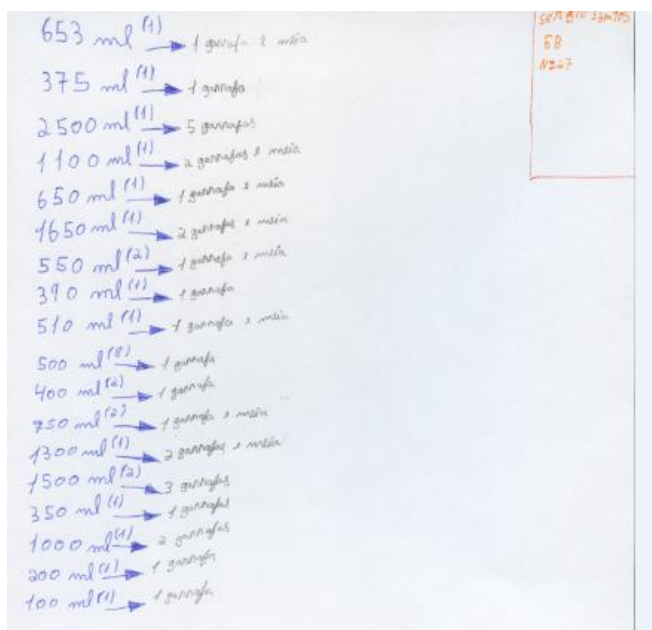 653 ml (1) → 1 garrafa e meia
375 ml (1) → 1 garrafa
2500 ml (1) → 5 garrafas
1100 ml (1) → 2 garrafas e meia
650 ml (1) → 1 garrafa e meia
1650 ml (1) → 2 garrafas e meia
550 ml (2) → 1 garrafa e meia
390 ml (1) → 1 garrafa
510 ml (1) → 1 garrafa e meia
500 ml (8) → 1 garrafa
400 ml (2) → 1 garrafa
750 ml (2) → 1 garrafa e meia
1300 ml (1) → 2 garrafas e meia
1500 ml (2) → 3 garrafas
350 ml (1) → 1 garrafa
1000 ml (1) → 2 garrafas
200 ml (1) → 1 garrafa
100 ml (1) → 1 garrafa
58
N227